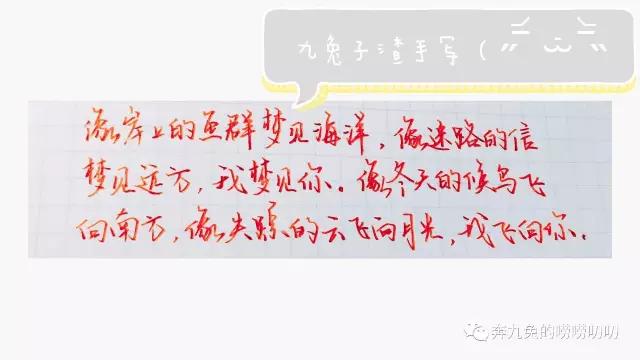 九兔子渣手写(
像岸上的鱼群梦见海洋,像迷路的信
梦见远方,我梦见你。像冬天的候鸟飞
向南方,像失踪的云飞向月光,我飞向你.
奔九兔的唠唠叨叨